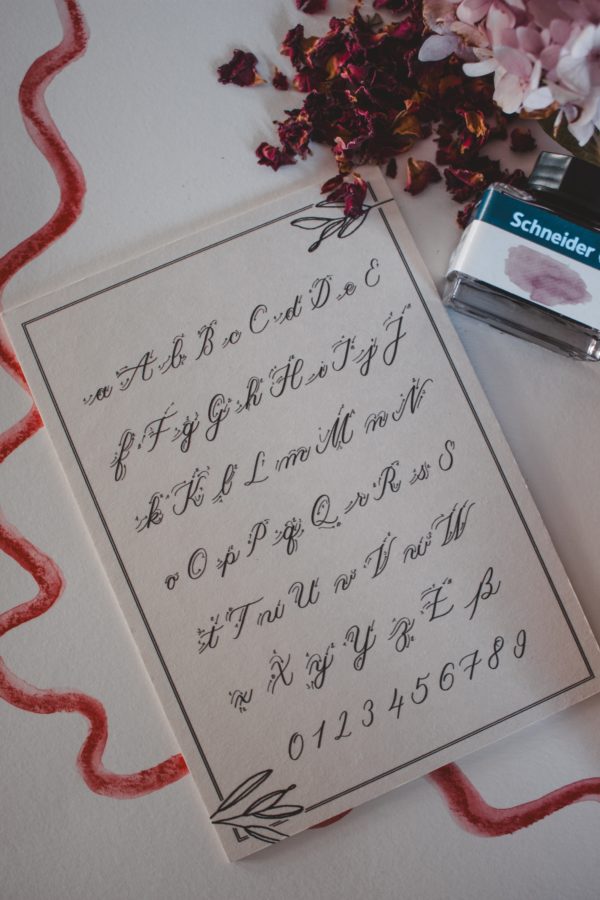 a A b B c C d D e E
f F g G h H i I j J
k K l L m M n N
o O p P q Q r R s S
t T u U v V w W
x X y Y z Z ß
0 1 2 3 4 5 6 7 8 9
Schneider